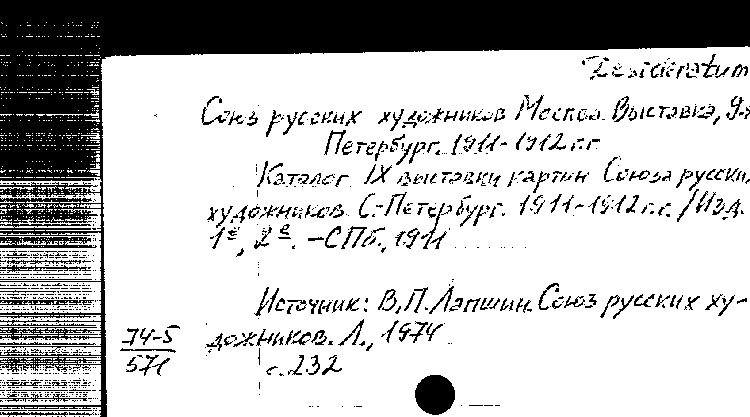 Desideratum
Союз русских художников Москва Выставка, 9-я
Петербург. 1911-1912 г.г.
Каталог IX выставки картин Союза русски
художников. С.-Петербург. 1911-1912 г.г. /Изд.
1е, 2е. -СПб., 1911
Источник: В.П. Лапшин. Союз русских ху-
дожников. Л., 1974
с. 232
74-5
571